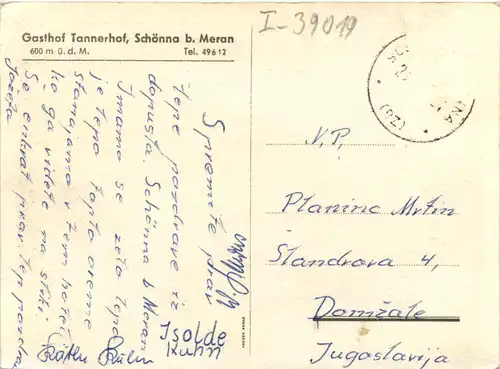 I-39019
Gasthof Tannerhof, Schönna b. Meran
600 m ü. d. M. Tel. 49612
Sprejmite prav
lepe pozdrave iz
dopusta. Schönna b Meran
Imamo se zelo lepo
je lepo toplo
stanujamo v tem hotel
ko ga vidite na sliki.
Še enkrat prav lep pozdrav
Jožeta
Käthe Kuhn
Isolde
Kuhn
N. P.
Planinc Mrtin
Slandrova 4,
Domžale
Jugoslavija